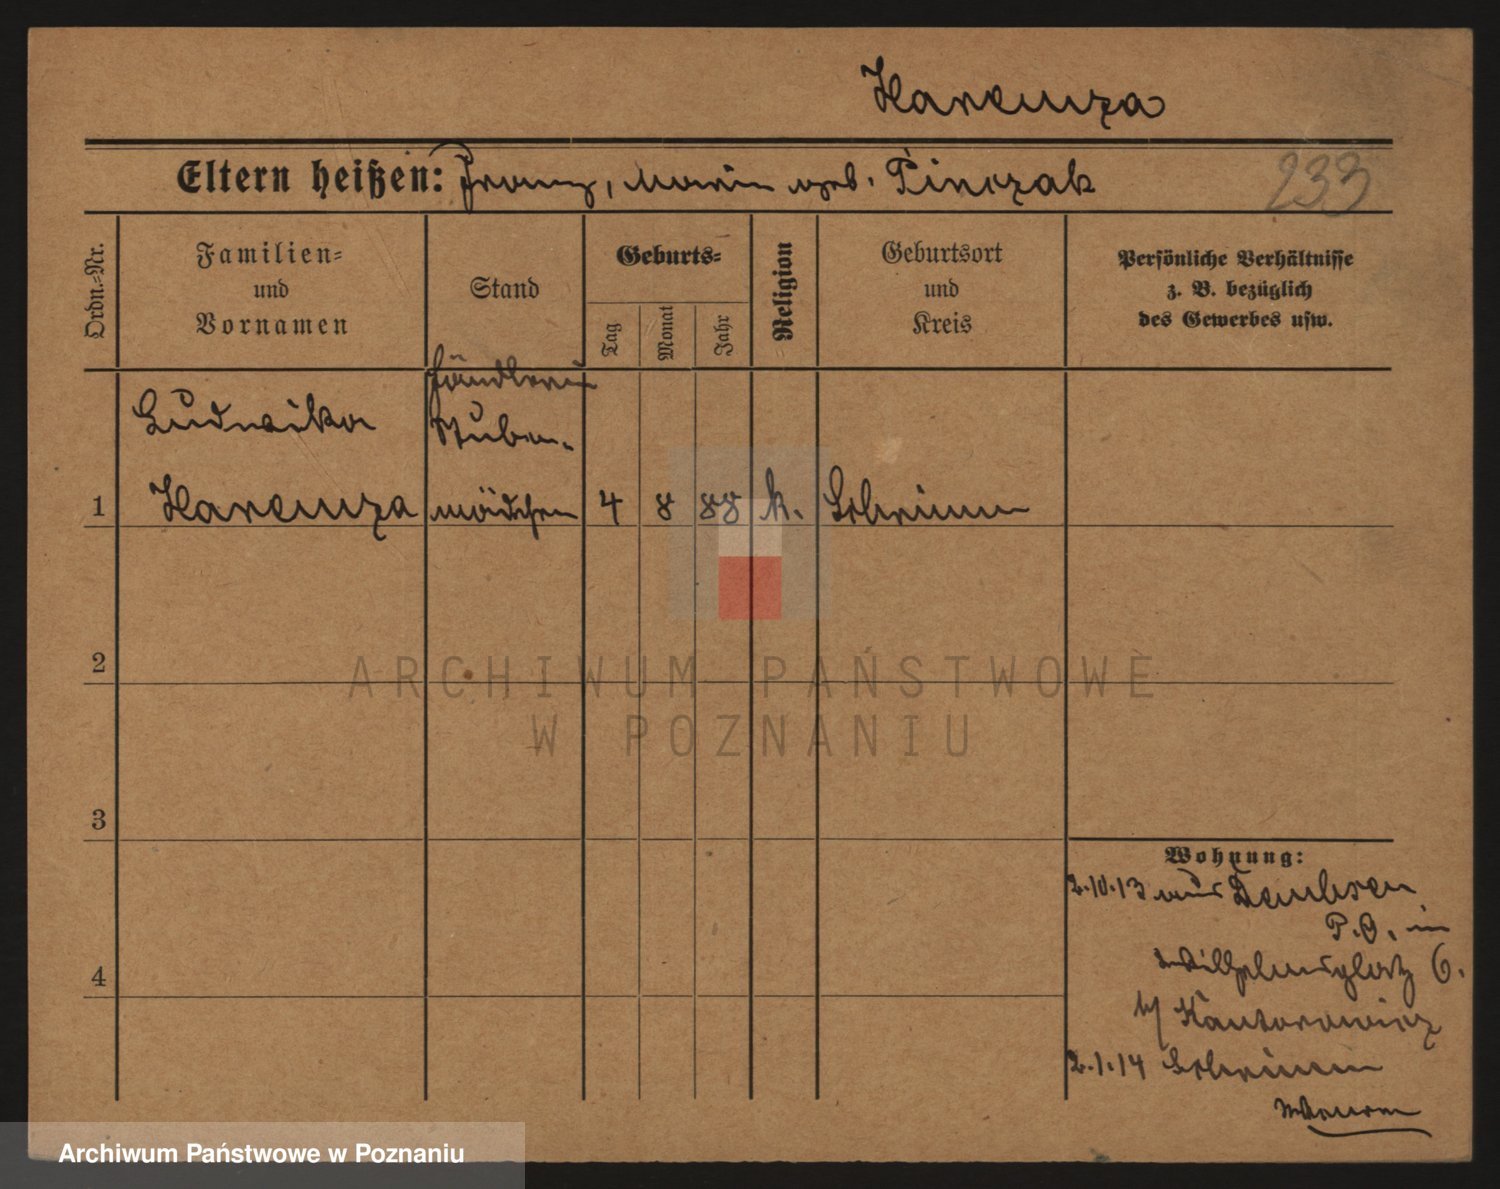 Harenza
Eltern heißen: Franz, Marie geb. Pinczak
233
Ordn.-Nr.
Familien-
und
Vornamen
Stand
Geburts-
Tag
Monat
Jahr
Religion
Geburtsort
und
Kreis
Persönliche Verhältnisse
z. B. bezüglich
des Gewerbes usw.
Händlerin
Ludwika
Stuben-
1 Harenza mädchen 4 8 88 k. Schrimm
2
3
4
Wohnung:
2.10.13 aus Dembsen
P.O. in
Wilhelmsplatz 6.
b/ Kantorowicz
2.1.14 Schrimm
ARCHIWUM PAŃSTWOWE
W POZNANIU
Archiwum Państwowe w Poznaniu